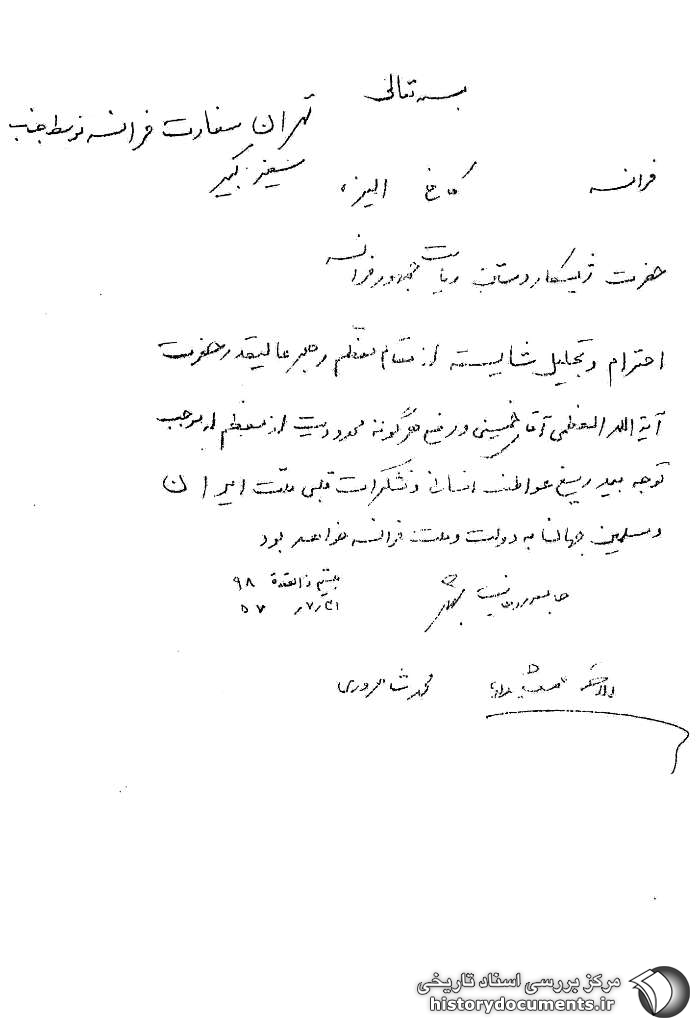 بسمه تعالی
تهران سفارت فرانسه توسط جناب
سفیر کبیر
فرانسه کاخ الیزه
حضرت ژیسکاردستن ریاست جمهور فرانسه
احترام و تجلیل شایسته از مقام معظم رهبر عالیقدر حضرت
آیة الله العظمی آقای خمینی و رفع هرگونه محدودیت از معظم له موجب
توجه بیدریغ عواطف انسانی و تشکرات قلبی ملت ایران
و مسلمین جهان به دولت و ملت فرانسه خواهد بود
جامعه روحانیت
بیستم ذالقعدة ۹۸
۵۷
محمد شاهرودی
مرکز بررسی اسناد تاریخی
historydocuments.ir